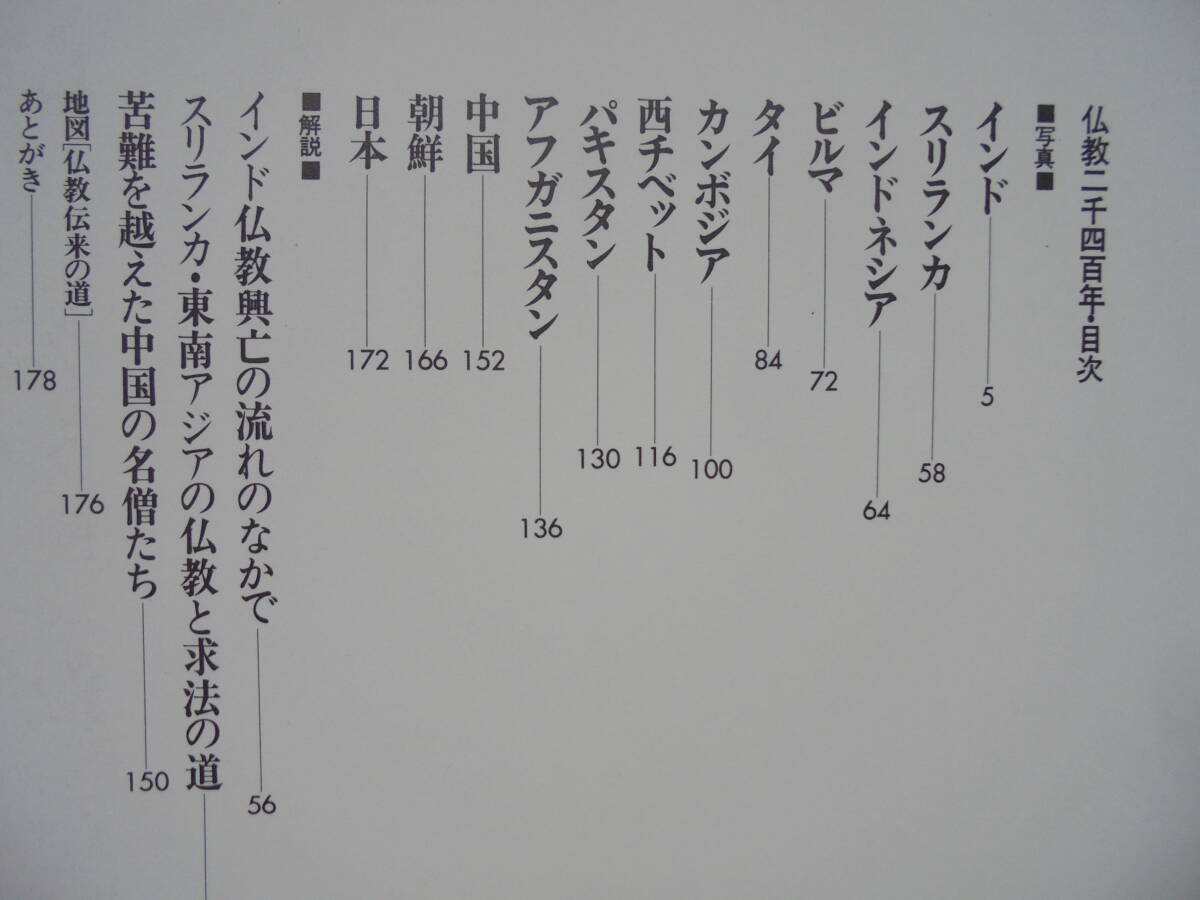 仏教二千四百年・目次
■写真■
インド 5
スリランカ 58
インドネシア 64
ビルマ 72
タイ 84
カンボジア 100
西チベット 116
パキスタン 130
アフガニスタン 136
中国 152
朝鮮 166
日本 172
■解説■
インド仏教興亡の流れのなかで 56
スリランカ・東南アジアの仏教と求法の道
苦難を越えた中国の名僧たち 150
地図[仏教伝来の道] 176
あとがき 178